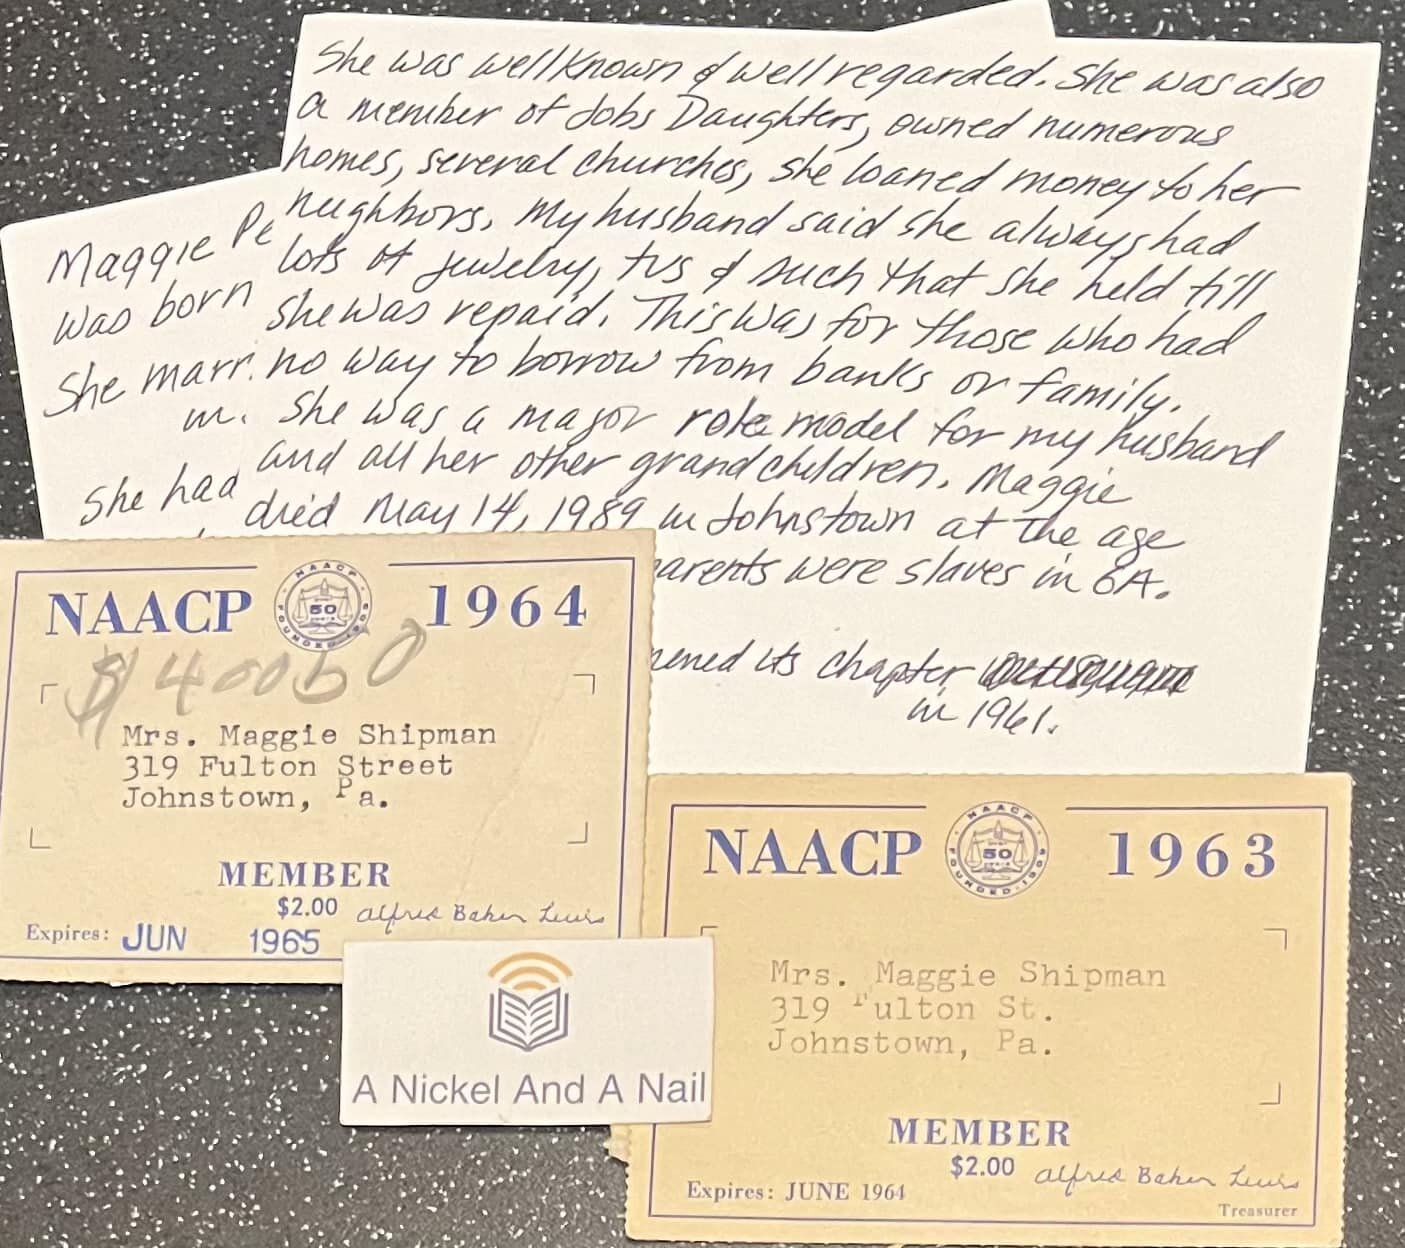 She was well known & well regarded. She was also
a member of Jobs Daughters, owned numerous
homes, several churches, she loaned money to her
neighbors. My husband said she always had
lots of jewelry, tvs & such that she held till
she was repaid. This was for those who had
no way to borrow from banks or family.
She was a major role model for my husband
and all her other grandchildren. Maggie
died May 14, 1989 in Johnstown at the age
parents were slaves in GA.
its chapter
in 1961.
Maggie
was born
She
in.
She had
NAACP 1964
NAACP
50
FOUNDED 1909
$40060
Mrs. Maggie Shipman
319 Fulton Street
Johnstown, Pa.
MEMBER
$2.00 Alfred Baker Lewis
Expires: JUN 1965
A Nickel And A Nail
NAACP 1963
NAACP
50
FOUNDED 1909
Mrs. Maggie Shipman
319 Fulton St.
Johnstown, Pa.
MEMBER
$2.00 Alfred Baker Lewis
Expires: JUNE 1964
Treasurer